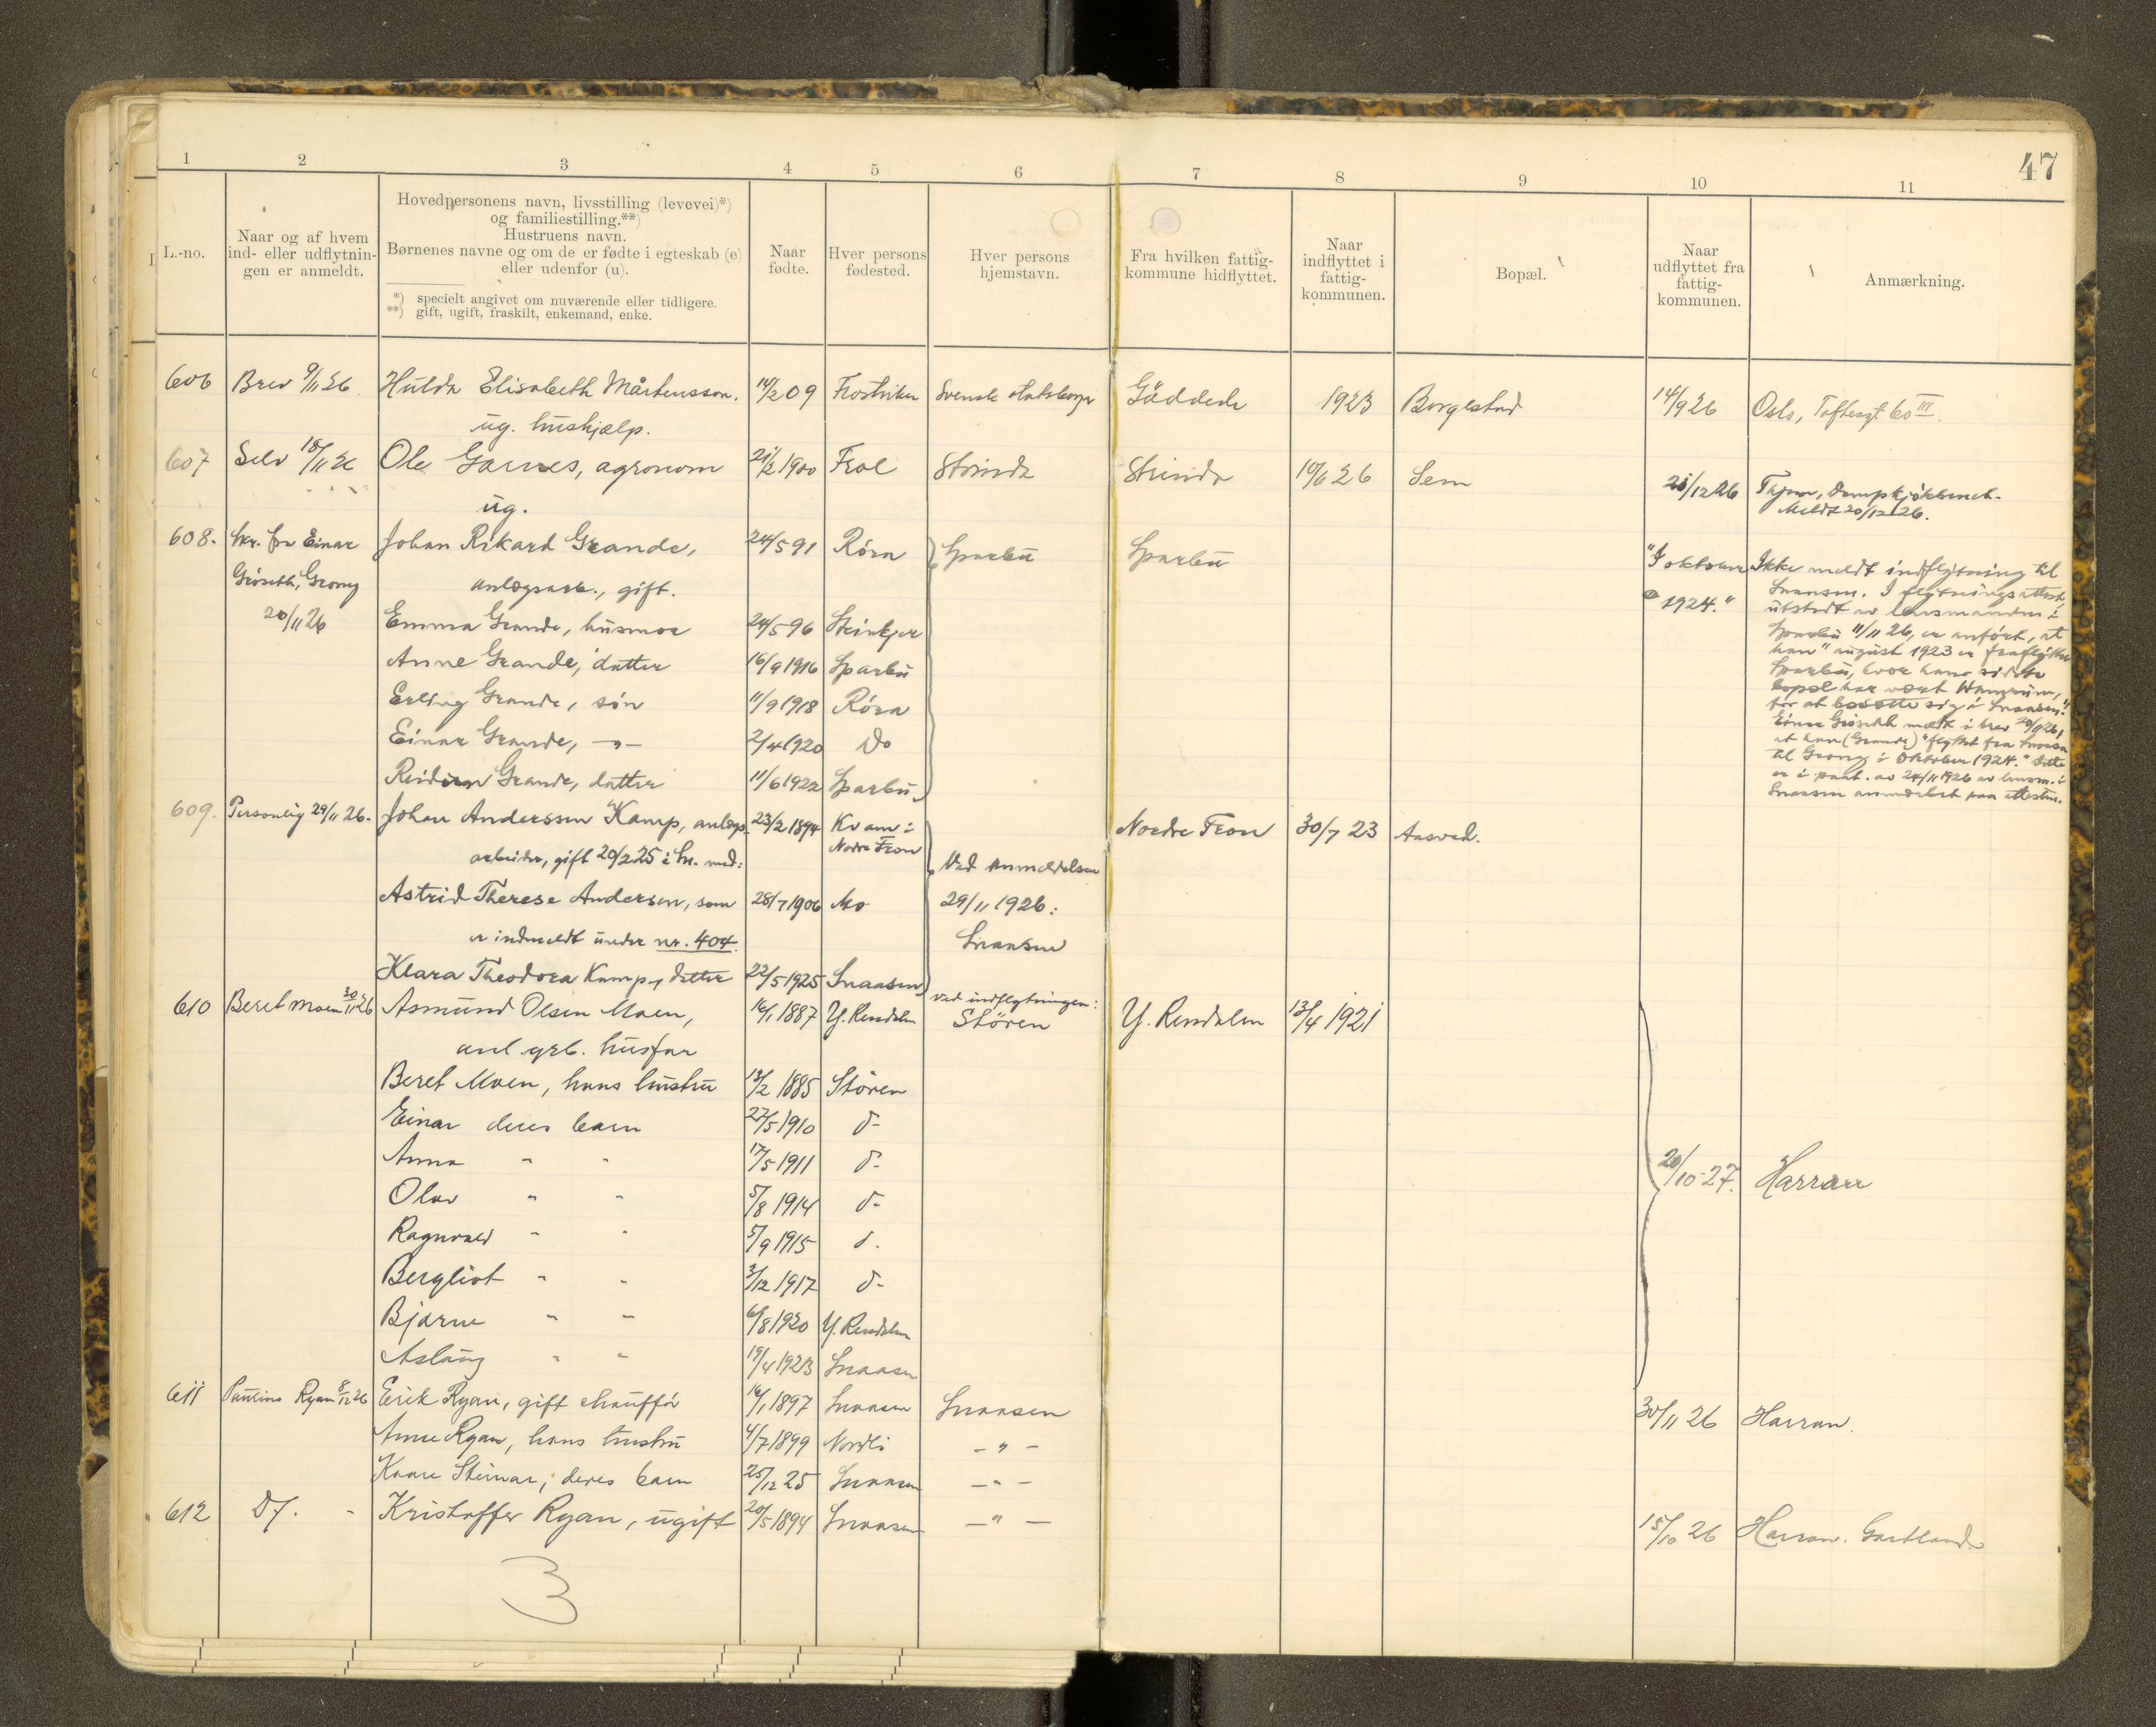 47
1 2 3 4 5 6 7 8 9 10 11
L.-no.
Naar og af hvem
ind- eller udflytnin-
gen er anmeldt.
Hovedpersonens navn, livsstilling (levevei)*)
og familiestilling.**)
Hustruens navn.
Børnenes navne og om de er fødte i egteskab (e)
eller udenfor (u).
*) specielt angivet om nuværende eller tidligere.
**) gift, ugift, fraskilt, enkemand, enke.
Naar
fødte.
Hver persons
fødested.
Hver persons
hjemstavn.
Fra hvilken fattig-
kommune hidflyttet.
Naar
indflyttet i
fattig-
kommunen.
Bopæl.
Naar
udflyttet fra
fattig-
kommunen.
Anmærkning.
606 Brev 9/11 26. Hulda Elisabeth Mårtensson. 14/2 09 Frostviken Svensk statsborger Gäddede 1923 Borgestad 14/9 26 Oslo, Toftesgt. 60 III.
ug. hushjælp.
607 Selv 18/11 26 Ole Garnes, agronom 21/2 1900 Frol Strinda Strinda 10/6 26 Sem 21/12 26 Thjem, Dampkjøkkenet.
ug. Meldt 20/12 26.
608. Skr. fra Einar Johan Rikard Grande, 24/5 91 Røra Sparbu Sparbu "I oktober Ikke meldt indflytning til
Grøseth, Grong anlægsarb., gift. 1924." Snaasen. I flytningsattest,
20/11 26 utstedt av lensmanden i
Emma Grande, husmor 24/5 96 Steinkjer Sparbu 11/11 26, er anført, at
Anne Grande, datter 16/9 1916 Sparbu han "august 1923 er fraflyttet
Sparbu, hvor hans sidste
Erling Grande, søn 11/9 1918 Røra bopæl har vært Hamrum,
for at bosætte sig i Snaasen."
Einar Grande, —"— 2/4 1920 Do Einar Grøseth meldt i brev 20/11 26,
at han (Grande) "flyttet fra Snaasa
Reidun Grande, datter 11/6 1922 Sparbu til Grong i oktober 1924." Dette
er i paat. av 24/11 1926 av lensm. i
Snaasen anmerket paa attesten.
609. Personlig 29/11 26. Johan Anderssen Kamp, anlægs- 23/2 1894 Kvam i Nordre Fron 30/7 23 Aasved.
arbeider, gift 20/2 25 i Sn. med: Nordre Fron Ved anmeldelsen
Astrid Therese Andersen, som 28/7 1906 Mo 29/11 1926:
er indmeldt under nr. 404. Snaasen
Klara Theodora Kamp, datter 22/5 1925 Snaasen
610 Beret Moen 30/11 26 Asmund Olsen Moen, 16/1 1887 Y. Rendalen Ved indflytningen: Y. Rendalen 13/4 1921
anl. arb. husfar Støren
Beret Moen, hans hustru 13/2 1885 Støren
Einar deres barn 27/5 1910 d-
Anna " " 17/5 1911 d- 20/10-27. Harran
Olav " " 5/8 1914 d-
Ragnvald " " 5/9 1915 d.
Bergliot " " 3/12 1917 d-
Bjarne " " 6/8 1920 Y. Rendalen
Aslaug " " 19/4 1923 Snaasen
611 Pauline Ryan 8/12 26 Erik Ryan, gift chauffør 16/1 1897 Snaasen Snaasen 30/11 26 Harran.
Anne Ryan, hans hustru 4/7 1899 Nordli — " —
Kaare Steinar, deres barn 25/12 25 Snaasen — " —
612 Df. - Kristoffer Ryan, ugift 20/5 1894 Snaasen — " — 15/10 26 Harran. Gartland.